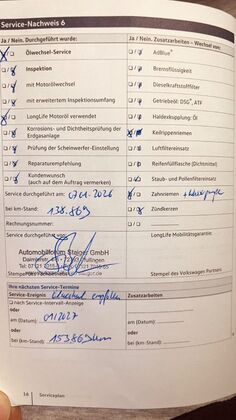 Service-Nachweis 6
Ja / Nein. Durchgeführt wurde:
Ölwechsel-Service
Inspektion
mit Motorölwechsel
mit erweitertem Inspektionsumfang
LongLife Motoröl verwendet
Korrosions- und Dichtheitsprüfung der
Erdgasanlage
Prüfung der Scheinwerfer-Einstellung
Reparaturempfehlung
Kundenwunsch
(auch auf dem Auftrag vermerken)
Service durchgeführt am:
bei km-Stand: 138.869
Rechnungsnummer:
Service durchgeführt von:
Automobilforum Steiger GmbH
Ja / Nein. Zusatzarbeiten – Wechsel von:
AdBlue®
Bremsflüssigkeit
Dieselkraftstofffilter
Getriebeöl: DSG®, ATF
Haldexkupplung: Öl
Keilrippenriemen
Luftfiltereinsatz
Reifenfüllflasche (Dichtmittel)
Staub- und Pollenfiltereinsatz
Zahnriemen
Zündkerzen
LongLife Mobilitätsgarantie:
Stempel des Volkswagen Partners
Ihre nächsten Service-Termine
Service-Ereignis
Zusatzarbeiten
nach Service-Intervall-Anzeige
oder
am (Datum): 01/2027
oder
bei (km-Stand): 153869km
am (Datum):
oder
bei (km-Stand):
Serviceplan